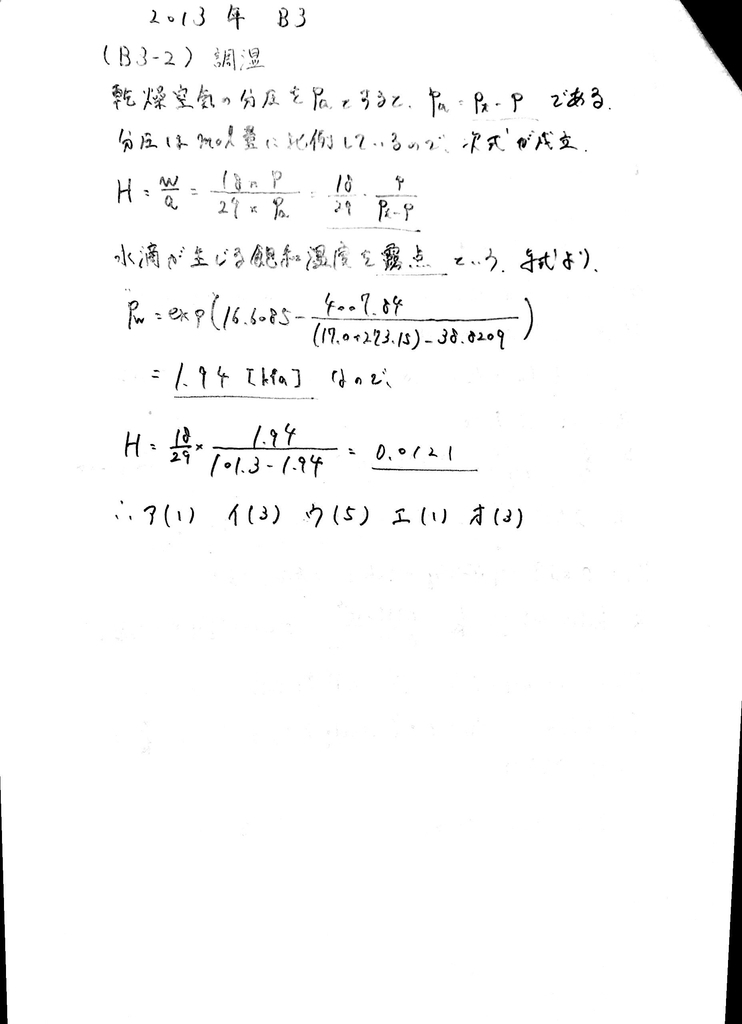 2013年 B3
(B3-2) 調湿
乾燥空気の分圧をPaとすると、Pa = Pt - P である.
分圧はmol量に比例しているので、次式が成立.
H = w/a = 18×P / 29×Pa = 18/29 · P/(Pt-P)
水滴が生じる飽和温度を露点という. 与式より、
Pw = exp(16.6085 - 4007.84 / ((17.0+273.15) - 38.8209))
= 1.94 [kPa] なので、
H = 18/29 × 1.94 / (101.3 - 1.94) = 0.0121
∴ ア(1) イ(3) ウ(5) エ(1) オ(3)